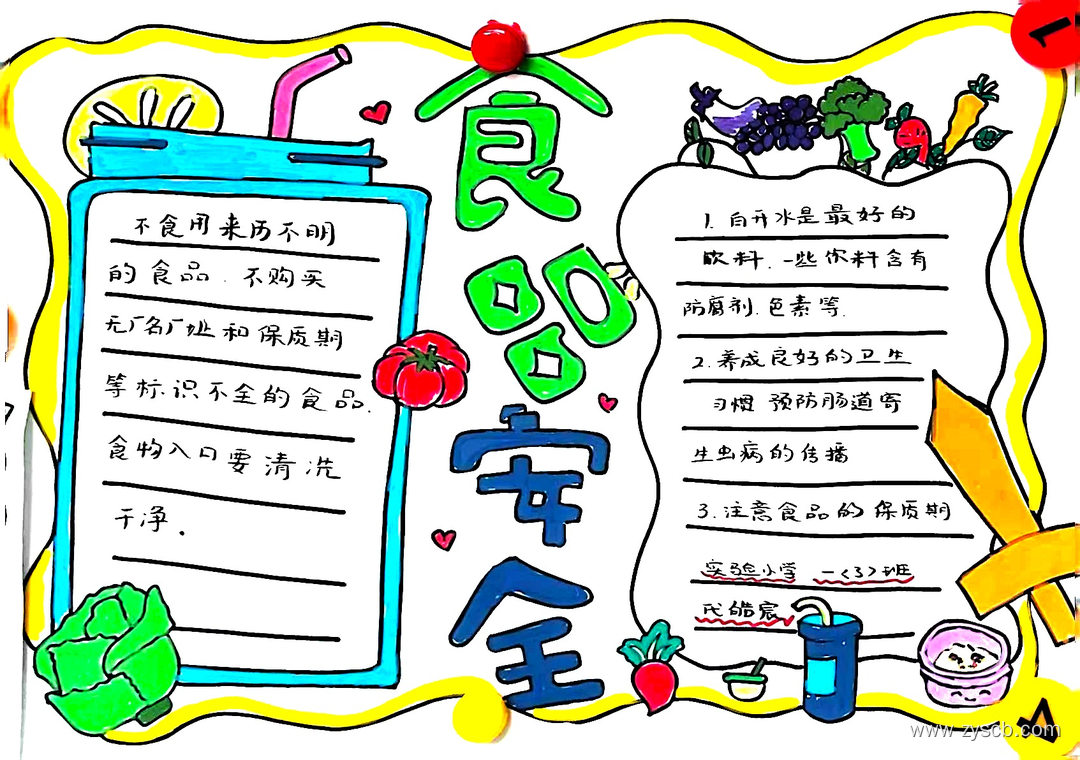 食品安全
不食用来历不明
的食品.不购买
无厂名厂址和保质期
等标识不全的食品.
食物入口要清洗
干净.
1.白开水是最好的
饮料.一些饮料含有
防腐剂.色素等.
2.养成良好的卫生
习惯 预防肠道寄
生虫病的传播
3.注意食品的保质期
实验小学 一<3>班
皓宸
1
www.zyscb.com